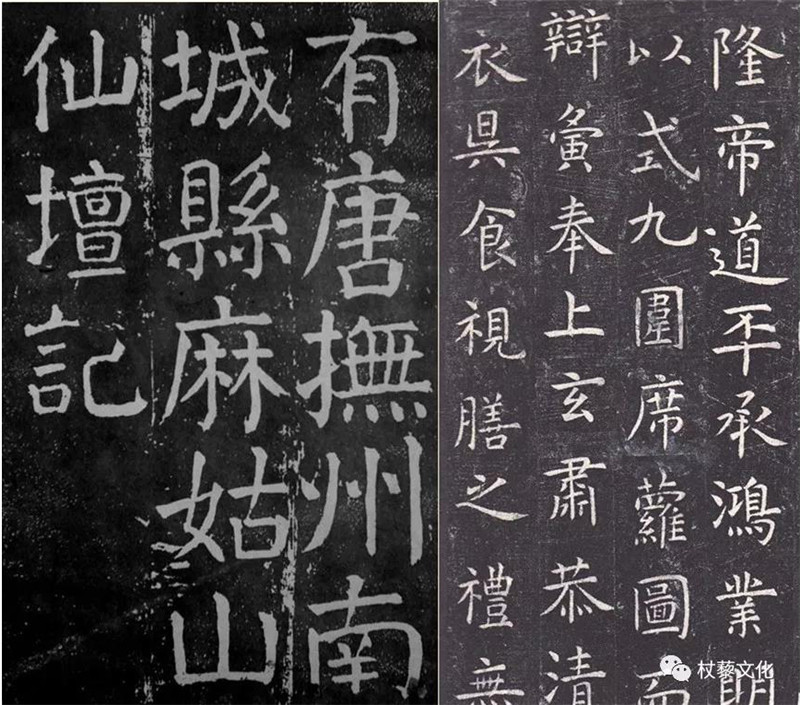 有唐撫州南
城縣麻姑山
仙壇記
隆帝道丕承鴻業明
以式九圍席蘿圖而
辯夤奉上玄肅恭清
衣具食視膳之禮無
杖藜文化